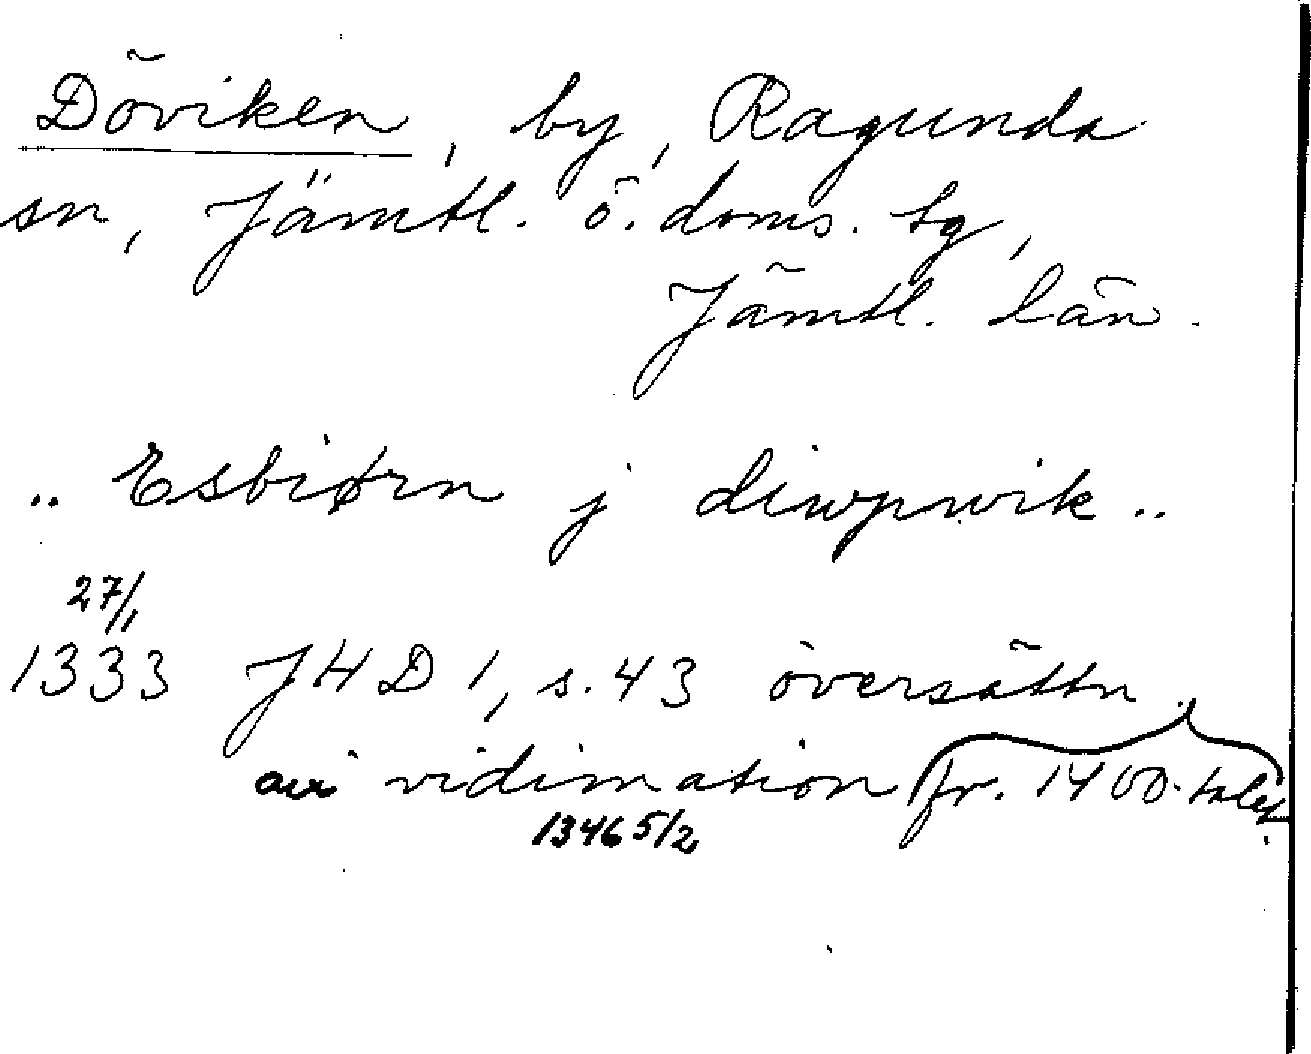 Döviken, by, Ragunda
sn, Jämtl. ö. doms. sg,
Jämtl. län.
.. Esbiørn j diwpwik ..
27/1
1333 JHD 1, s. 43 översättn.
av vidimation fr. 1400-talet.
1346 5/2